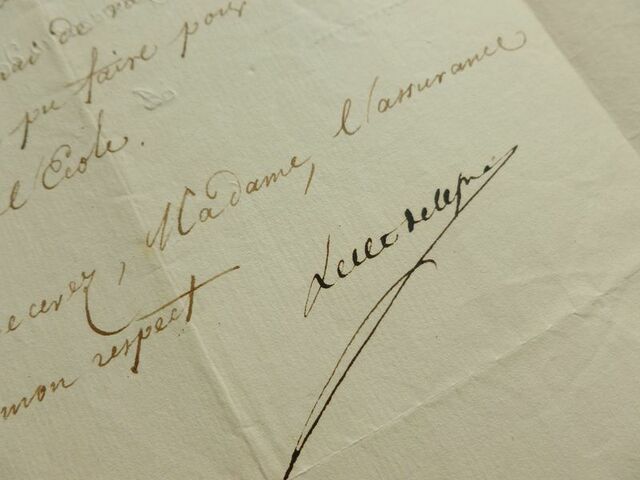 de
pu faire pour
l'Ecole.
recevez, Madame, l'assurance
mon respect